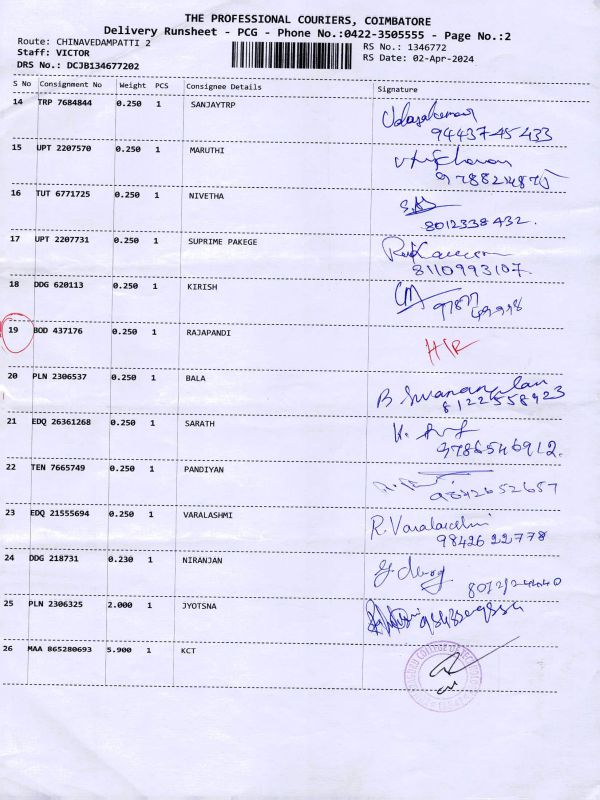 THE PROFESSIONAL COURIERS, COIMBATORE
Delivery Runsheet - PCG - Phone No.:0422-3505555 - Page No.:2
Route: CHINAVEDAMPATTI 2
RS No.: 1346772
Staff: VICTOR
RS Date: 02-Apr-2024
DRS No.: DCJB134677202
S No Consignment No Weight PCS Consignee Details Signature
14 TRP 7684844 0.250 1 SANJAYTRP
94437-45433
15 UPT 2207570 0.250 1 MARUTHI
16 TUT 6771725 0.250 1 NIVETHA
8012338432.
17 UPT 2207731 0.250 1 SUPRIME PAKEGE
8110993107.
18 DDG 620113 0.250 1 KIRISH
19 BOD 437176 0.250 1 RAJAPANDI
20 PLN 2306537 0.250 1 BALA
8122558923
21 EDQ 26361268 0.250 1 SARATH
9786546912.
22 TEN 7665749 0.250 1 PANDIYAN
9842652657
23 EDQ 21555694 0.250 1 VARALASHMI
R. Varalaxmi
9842622778
24 DDG 218731 0.230 1 NIRANJAN
25 PLN 2306325 2.000 1 JYOTSNA
26 MAA 865280693 5.900 1 KCT